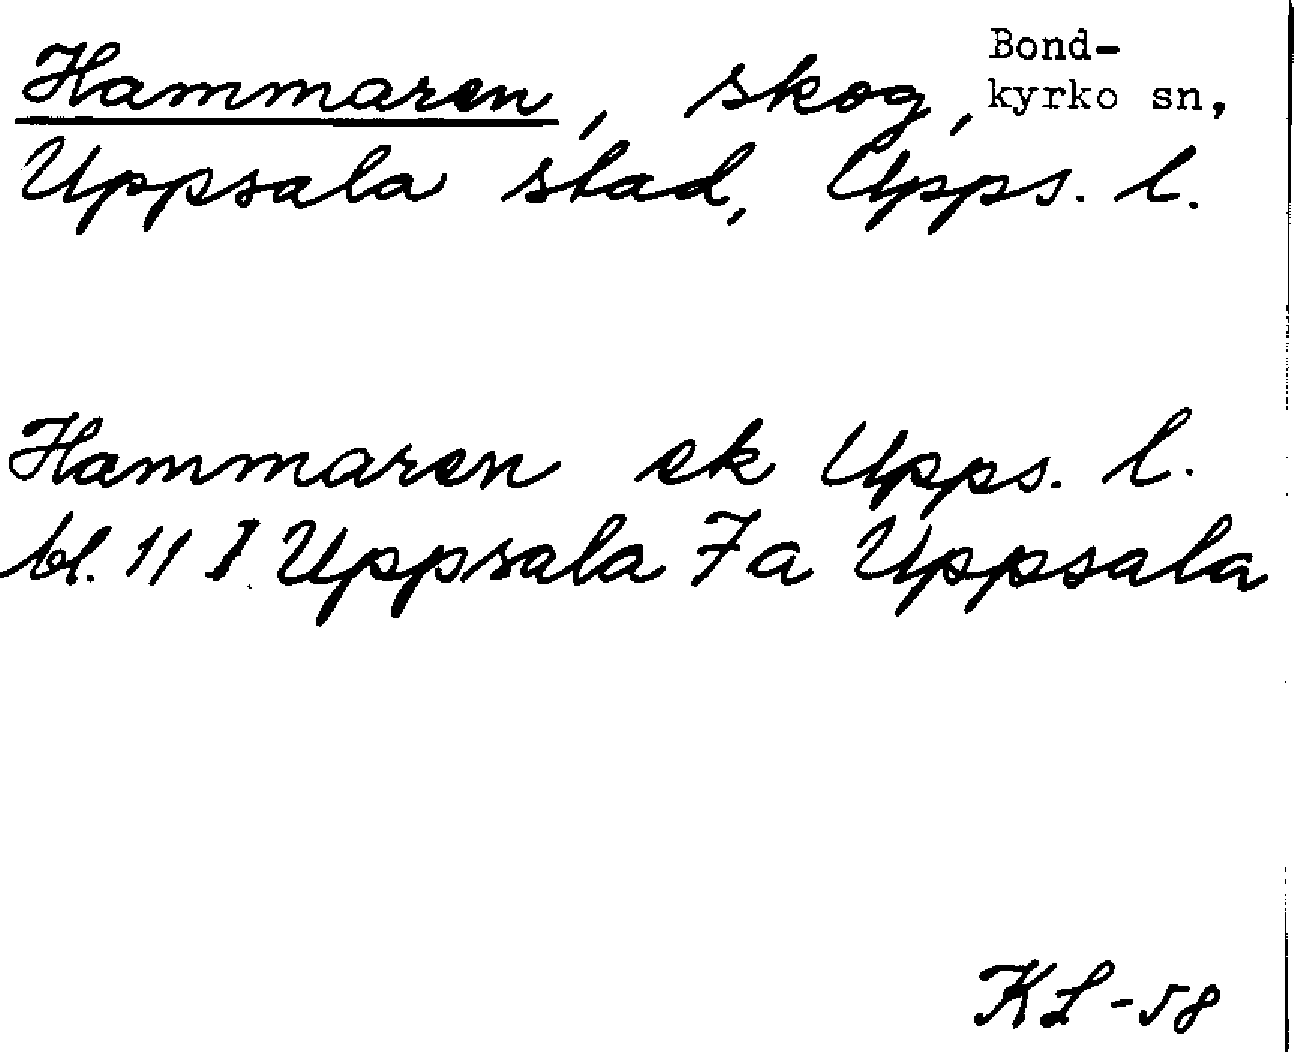 Hammaren, skog, Bond-
kyrko sn,
Uppsala stad, Upps. l.
Hammaren ek Upps. l.
bl. 11 I Uppsala 7a Uppsala
KL-58